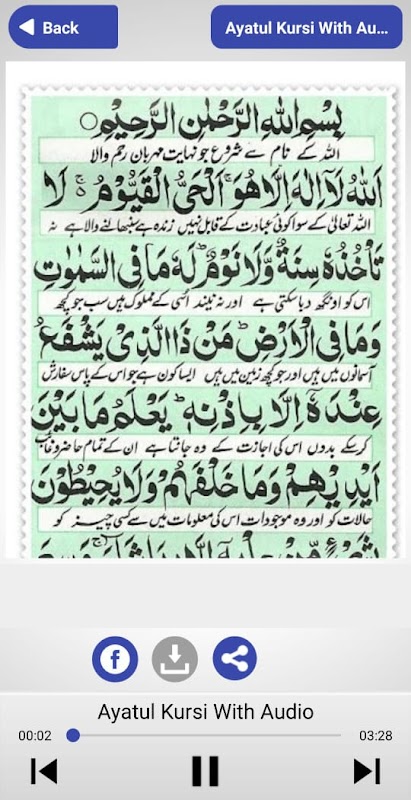 Back
Ayatul Kursi With Au...
بِسْمِ اللهِ الرَّحْمٰنِ الرَّحِيْمِ
اللہ کے نام سے شروع جو نہایت مہربان رحم والا
اَللهُ لَآ اِلٰهَ اِلَّا هُوَ ۚ اَلْحَيُّ الْقَيُّوْمُ ۚ لَا
اللہ تعالٰی کے سوا کوئی عبادت کے قابل نہیں زندہ ہے سنبھالنے والا ہے نہ
تَأْخُذُهٗ سِنَةٌ وَّلَا نَوْمٌ ؕ لَهٗ مَا فِي السَّمٰوٰتِ
اس کو اونگھ دبا سکتی ہے اور نہ نیند اسی کے مملوک ہیں سب جو کچھ
وَمَا فِي الْاَرْضِ ؕ مَنْ ذَا الَّذِيْ يَشْفَعُ
آسمانوں میں ہیں اور جو کچھ زمین میں ہیں ایسا کون ہے جو اس کے پاس سفارش
عِنْدَهٗٓ اِلَّا بِاِذْنِهٖ ؕ يَعْلَمُ مَا بَيْنَ
کرسکے بدوں اس کی اجازت کے وہ جانتا ہے ان کے تمام حاضر و غائب
اَيْدِيْهِمْ وَمَا خَلْفَهُمْ وَلَا يُحِيْطُوْنَ
حالات کو اور وہ موجودات اس کی معلومات میں سے کسی چیز کو
Ayatul Kursi With Audio
00:02
03:28